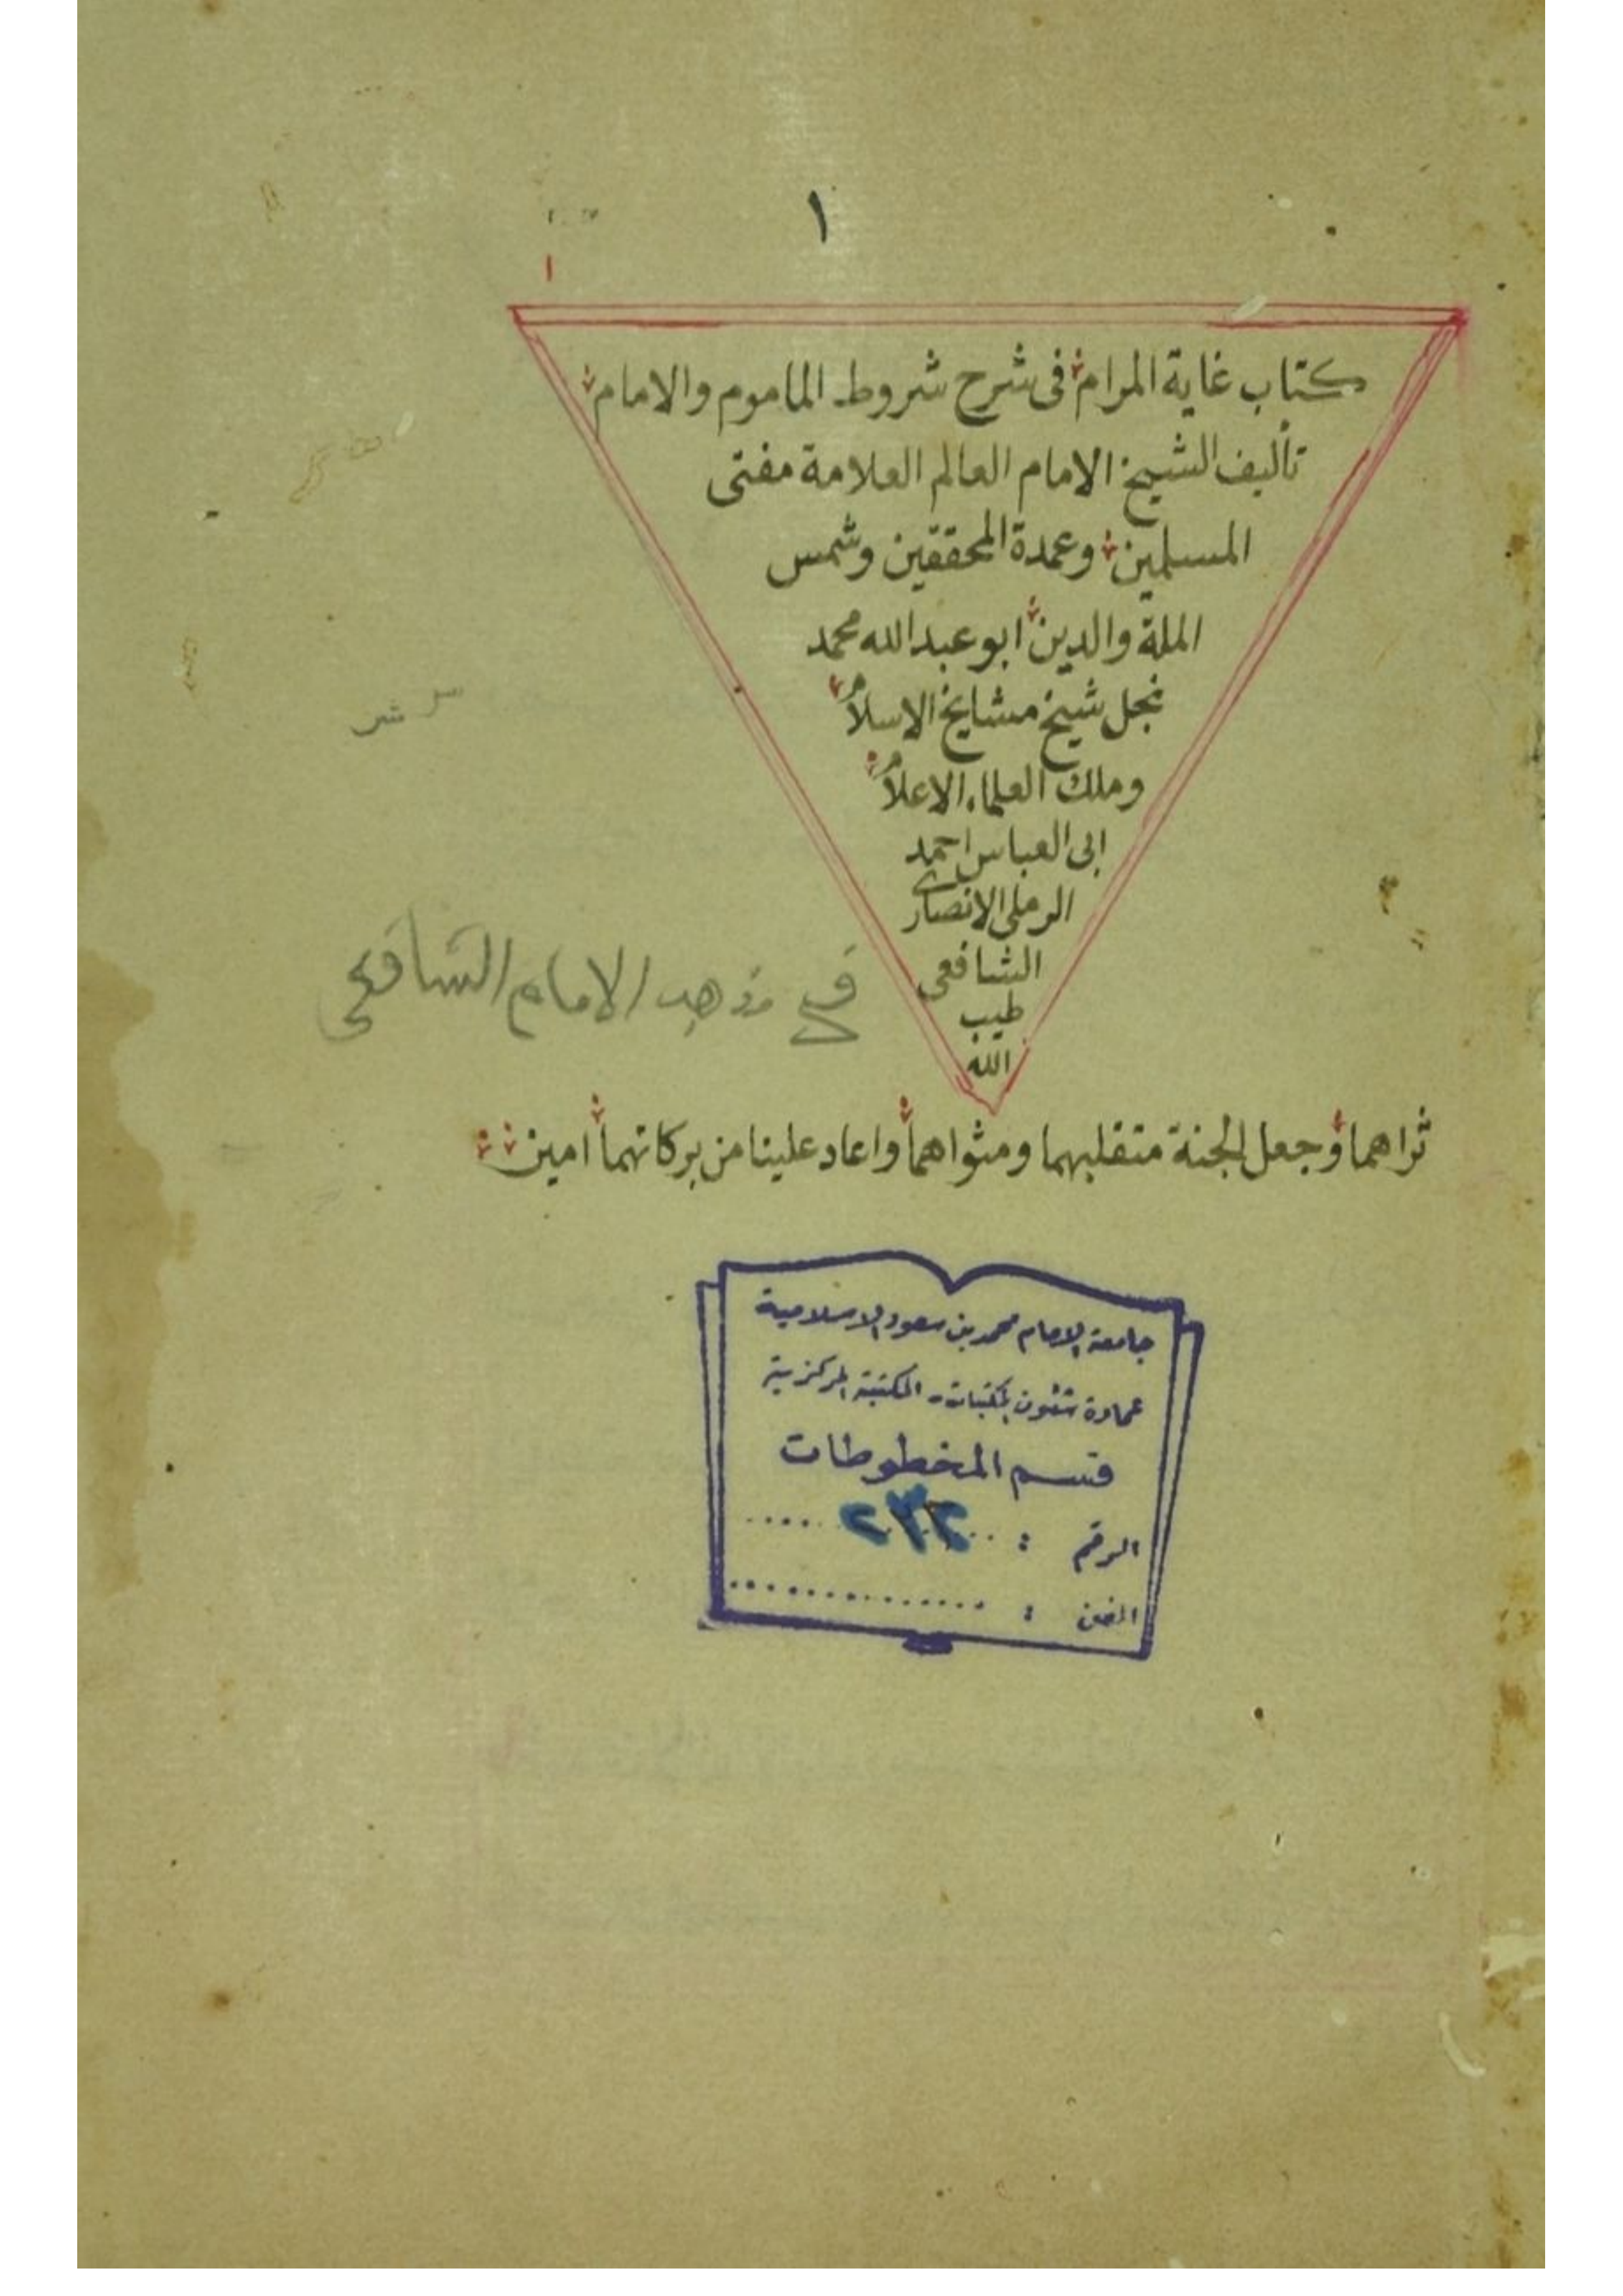 ١
١
كتاب غاية المرام في شرح شروط الماموم والامام
تأليف الشيخ الامام العالم العلامة مفتى
المسلمين وعمدة المحققين وشمس
الملة والدين ابو عبد الله محمد
نجل شيخ مشايخ الاسلام
وملك العلماء الاعلام
ابى العباس احمد
الرملى الانصارى
الشافعى
طيب
الله
في مذهب الامام الشافعي
ثراهما وجعل الجنة متقلبهما ومثواهما واعاد علينا من بركاتهما امين
جامعة الامام محمد بن سعود الاسلامية
عمادة شئون المكتبات - المكتبة المركزية
قسم المخطوطات
الرقم : ٢٣٢
الفن :